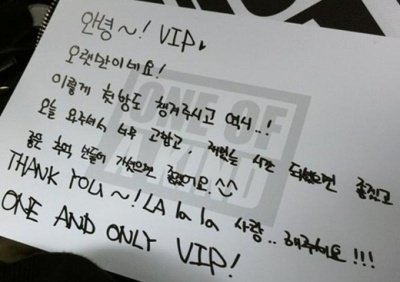 안녕~! VIP♥
오랫만이네요!
이렇게 첫방도 챙겨주시고 역시..!
오늘 와주셔서 너무 고맙고, 재밌는 시간 되셨으면 좋겠고
좋은 추억 만들어 가셨으면 좋겠어요.^^
THANK YOU~! LA la la 사랑.. 해주세요!!!
ONE AND ONLY VIP!
ONE OF
A KIND